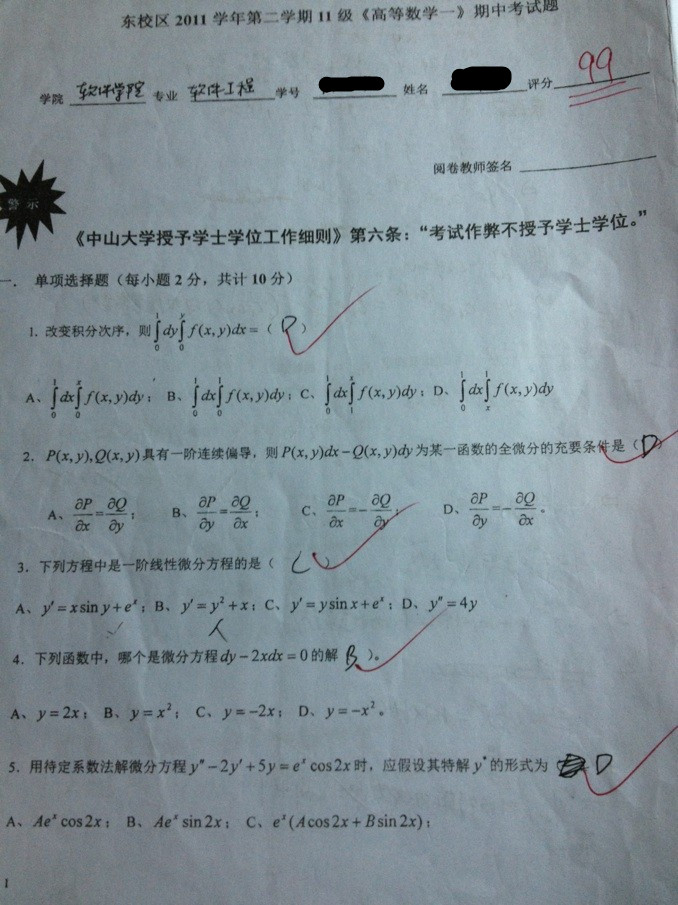 东校区 2011 学年第二学期 11 级《高等数学一》期中考试题
学院 软件学院 专业 软件工程 学号 姓名 评分 99
阅卷教师签名
警示
《中山大学授予学士学位工作细则》第六条：“考试作弊不授予学士学位。”
一． 单项选择题（每小题 2 分，共计 10 分）
1. 改变积分次序，则∫₀¹dy∫₀ʸ f(x,y)dx =（ D ）
A、∫₀¹dx∫₀ˣ f(x,y)dy； B、∫₀¹dx∫₀¹ f(x,y)dy；C、∫₀¹dx∫₁ˣ f(x,y)dy；D、∫₀¹dx∫ₓ¹ f(x,y)dy
2．P(x,y),Q(x,y)具有一阶连续偏导，则P(x,y)dx−Q(x,y)dy为某一函数的全微分的充要条件是（ D ）
A、∂P/∂x=∂Q/∂y； B、∂P/∂y=∂Q/∂x； C、∂P/∂x=−∂Q/∂y； D、∂P/∂y=−∂Q/∂x。
3．下列方程中是一阶线性微分方程的是（ C ）
A、y′=x sin y+eˣ；B、y′=y²+x；C、y′=y sin x+eˣ；D、y″=4y
4．下列函数中，哪个是微分方程dy−2xdx=0的解 B ）。
A、y=2x； B、y=x²； C、y=−2x； D、y=−x²。
5．用待定系数法解微分方程y″−2y′+5y=eˣ cos2x时，应假设其特解y*的形式为 D
A、Aeˣ cos2x； B、Aeˣ sin2x； C、eˣ(Acos2x+Bsin2x)；
1